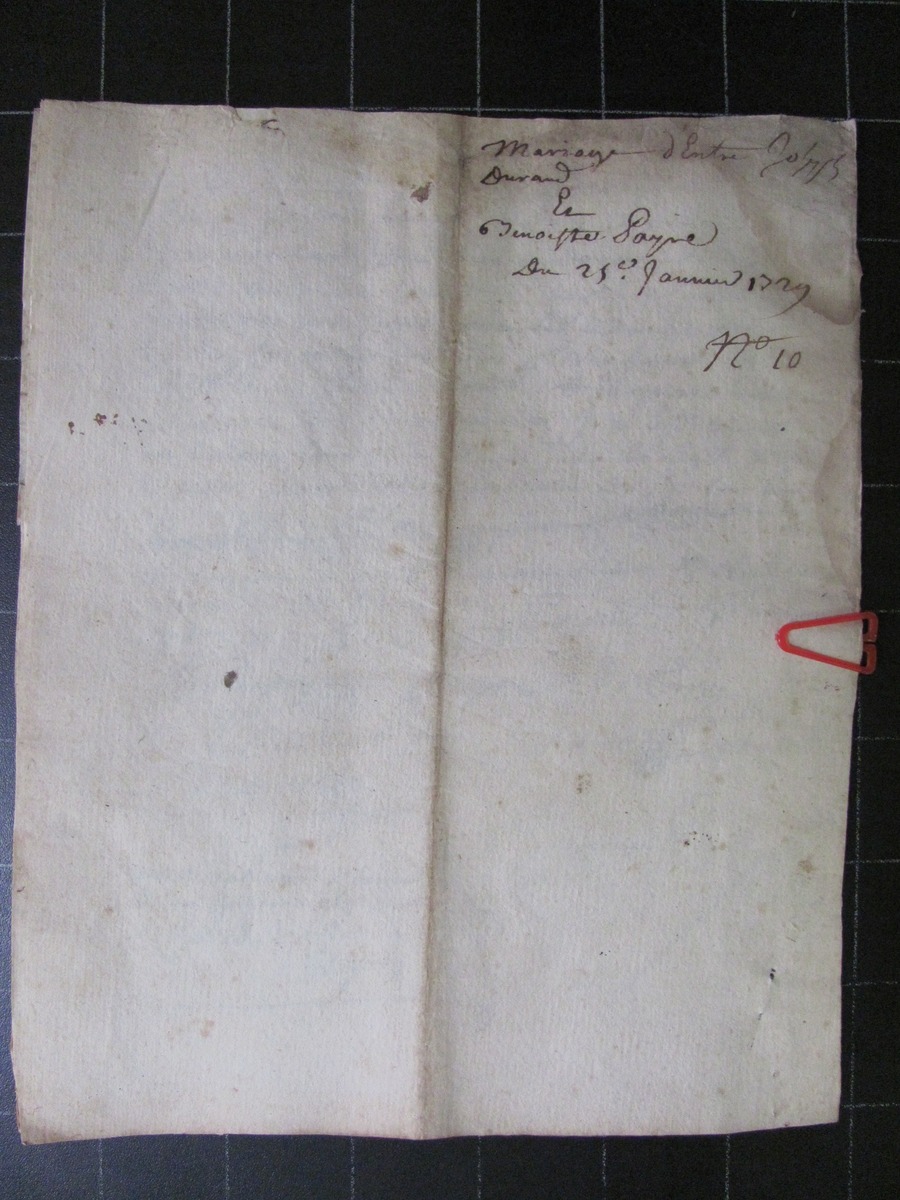 Mariage d'Entre Joseph
Durand
Et
Benoiste Payre
Du 25e. Janvier 1729
No 10